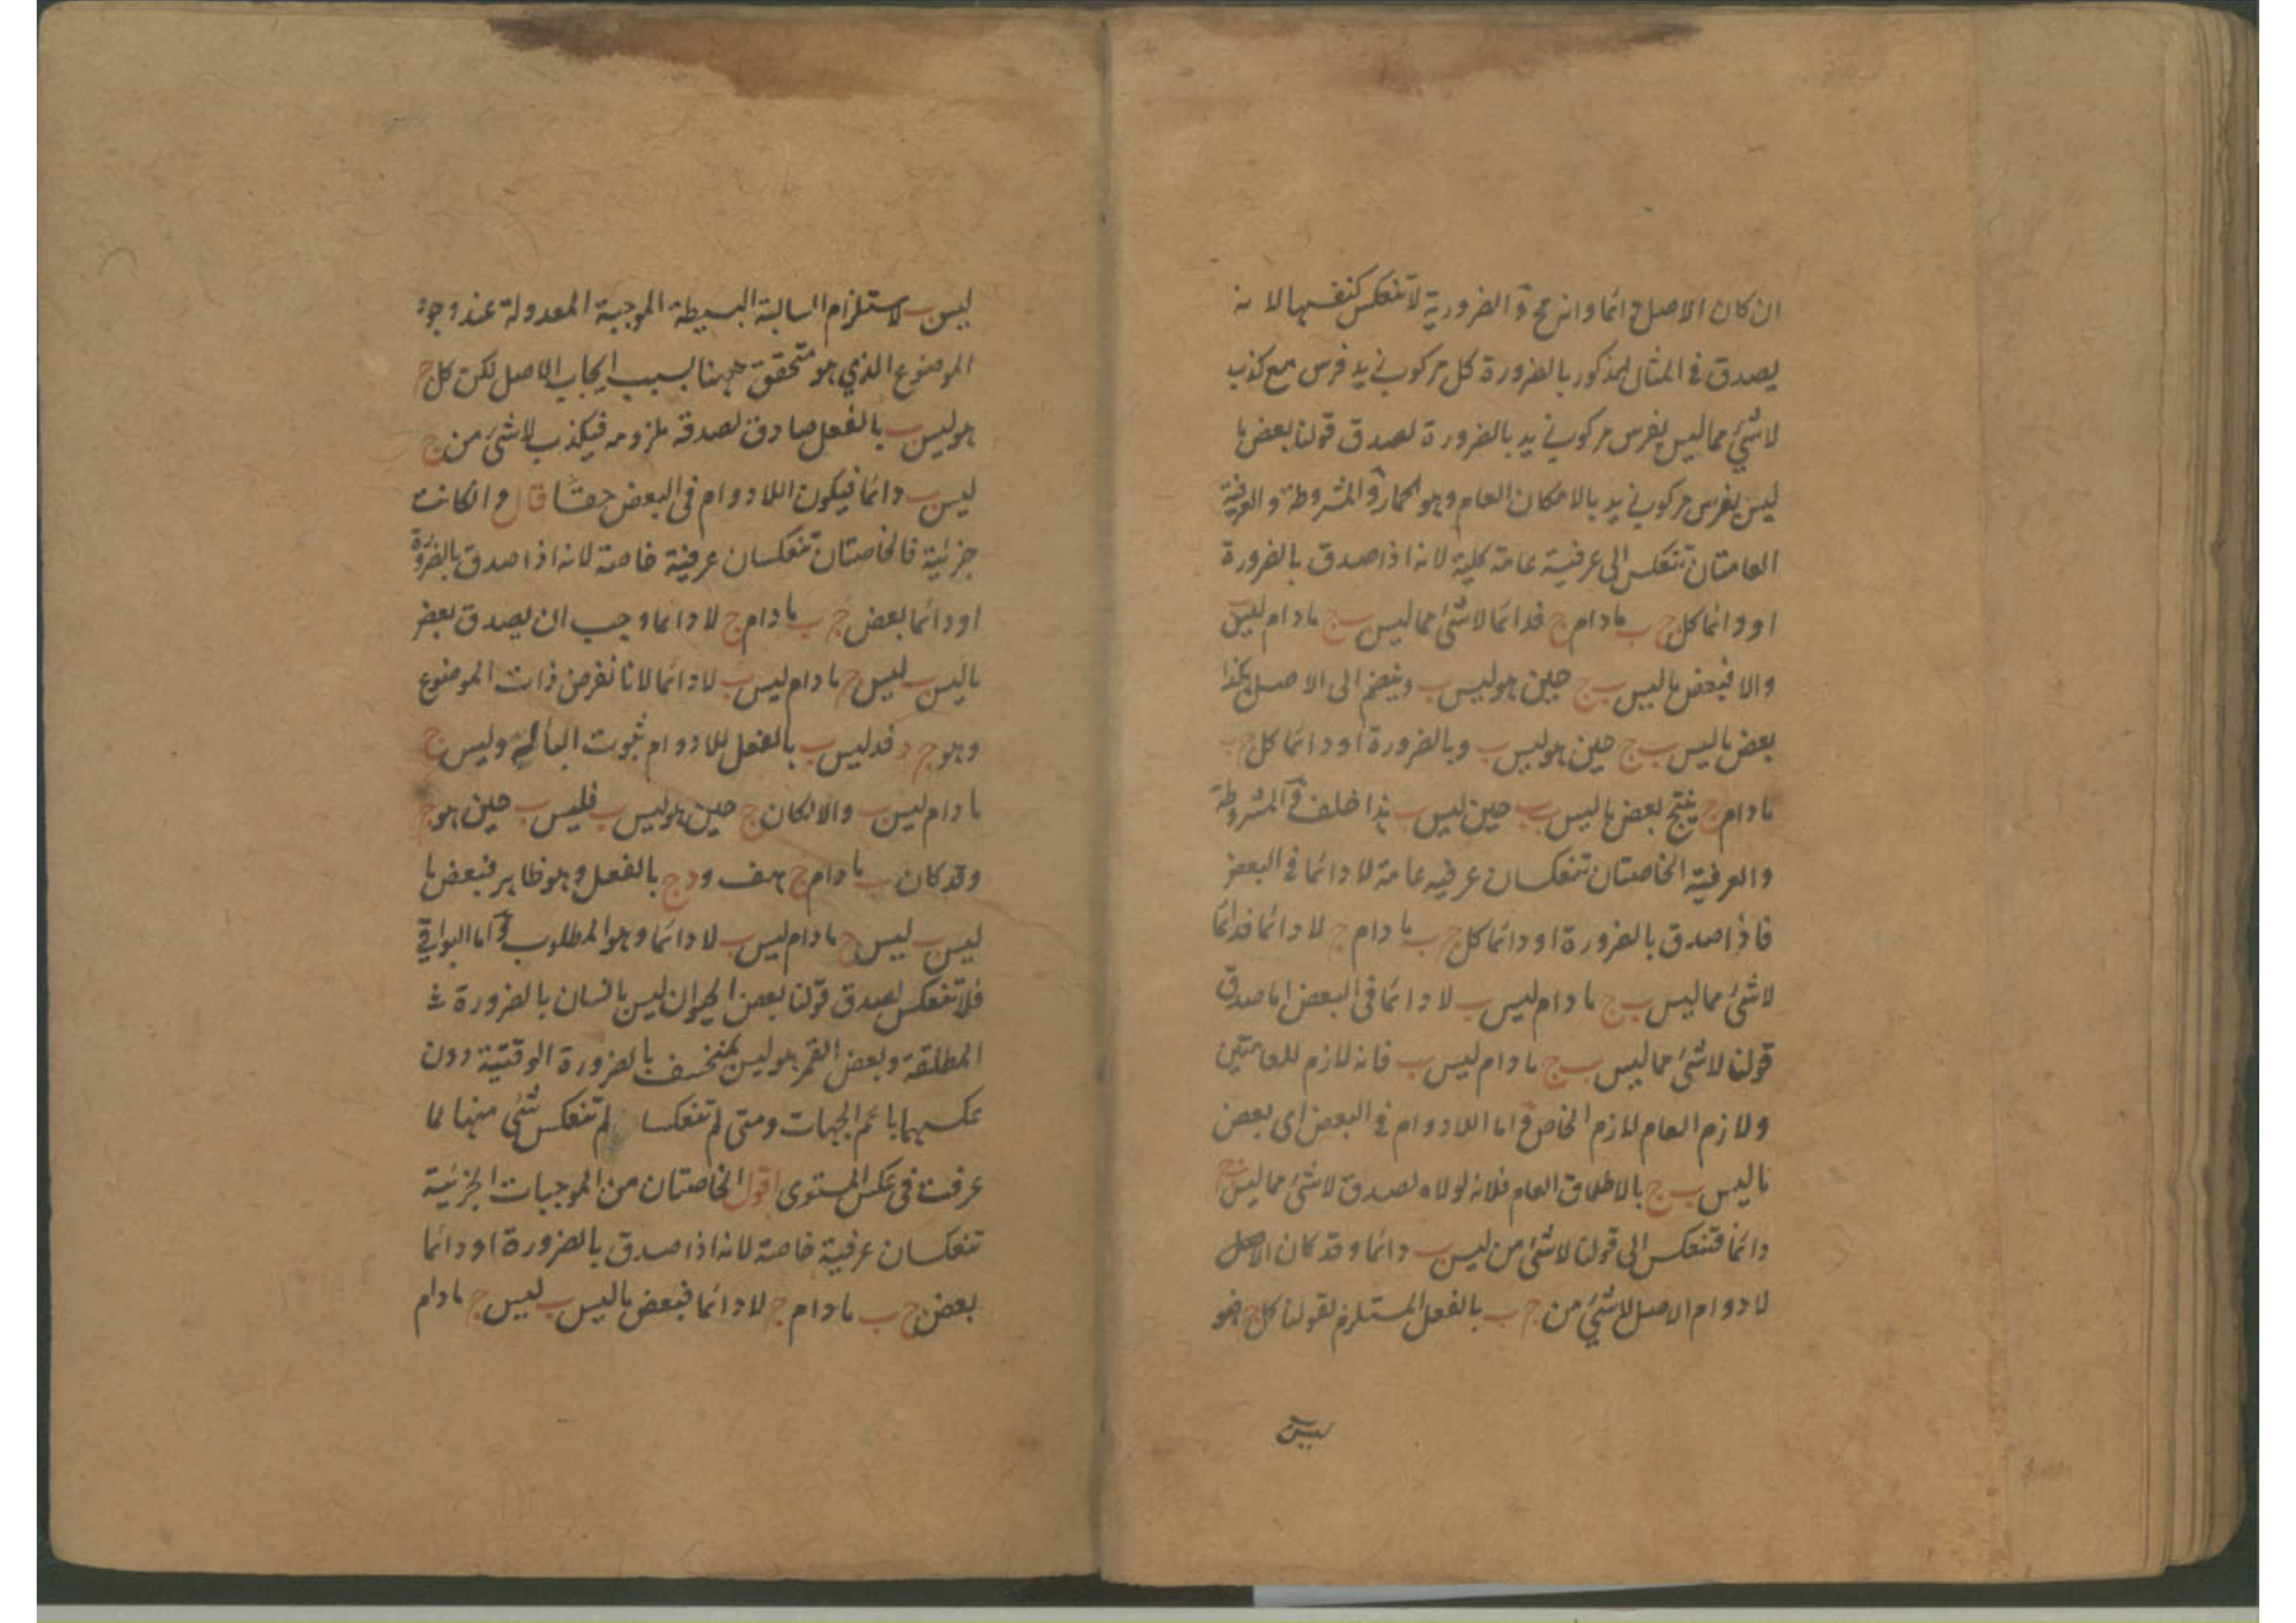 ان كان الاصل دائما وانه مح و الضرورية لا تنعكس كنفسها لانه
يصدق في المثال المذكور بالضرورة كل مركوب زيد فرس مع كذب
لا شئ مما ليس بفرس مركوب زيد بالضرورة لصدق قولنا بعض ما
ليس بفرس مركوب زيد بالامكان العام وهو الحمار و المشروطة والعرفية
العامتان تنعكس الى عرفية عامة كلية لانه اذا صدق بالضرورة
او دائما كل ج ب ما دام ج فدائما لا شئ مما ليس ب ج ما دام ليس ب
والا فبعض ما ليس ب ج حين هو ليس ب وينضم الى الاصل هكذا
بعض ما ليس ب ج حين هو ليس ب وبالضرورة او دائما كل ج ب
ما دام ج ينتج بعض ما ليس ب ب حين ليس ب هذا خلف و المشروطة
والعرفية الخاصتان تنعكسان عرفيه عامة لا دائما في البعض
فاذا صدق بالضرورة او دائما كل ج ب ما دام ج لا دائما فدائما
لا شئ مما ليس ب ج ما دام ليس ب لا دائما في البعض اما صدق
قولنا لا شئ مما ليس ب ج ما دام ليس ب فانه لازم للعامتين
ولازم العام لازم الخاص و اما اللادوام في البعض اى بعض
ما ليس ب ج بالاطلاق العام فلانه لولاه لصدق لا شئ مما ليس ب ج
دائما فتنعكس الى قولنا لا شئ من ليس ب دائما وقد كان الاصل
لا دوام الاصل لا شئ من ج ب بالفعل المستلزم لقولنا كل ج هو
ليس ب
ليس ب لاستلزام السالبة البسيطة الموجبة المعدولة عند وجود
الموضوع الذي هو متحقق ههنا بسبب ايجاب الاصل لكن كل ج
هو ليس ب بالفعل صادق لصدق ملزومه فيكذب لا شئ من ج
ليس ب دائما فيكون اللادوام في البعض حقا قال وان كانت
جزئية فالخاصتان تنعكسان عرفية خاصة لانه اذا صدق بالضرورة
او دائما بعض ج ب ما دام ج لا دائما وجب ان يصدق بعض
ما ليس ب ليس ج ما دام ليس ب لا دائما لانا نفرض ذات الموضوع
وهو ج د فد ليس ب بالفعل للادوام ثبوت الباء له وليس ج
ما دام ليس ب والا لكان ج حين هو ليس ب فليس ب حين هو ج
وقد كان ب ما دام ج هف و د ج بالفعل وهو ظاهر فبعض ما
ليس ب ليس ج ما دام ليس ب لا دائما وهو المطلوب و اما البواقي
فلا تنعكس لصدق قولنا بعض الحيوان ليس بانسان بالضرورة
المطلقة وبعض القمر هو ليس بمنخسف بالضرورة الوقتية دون
عكسيهما باعم الجهات ومتى لم تنعكسا لم تنعكس شئ منها لما
عرفت في عكس المستوى اقول الخاصتان من الموجبات الجزئية
تنعكسان عرفية خاصة لانه اذا صدق بالضرورة او دائما
بعض ج ب ما دام ج لا دائما فبعض ما ليس ب ليس ج ما دام